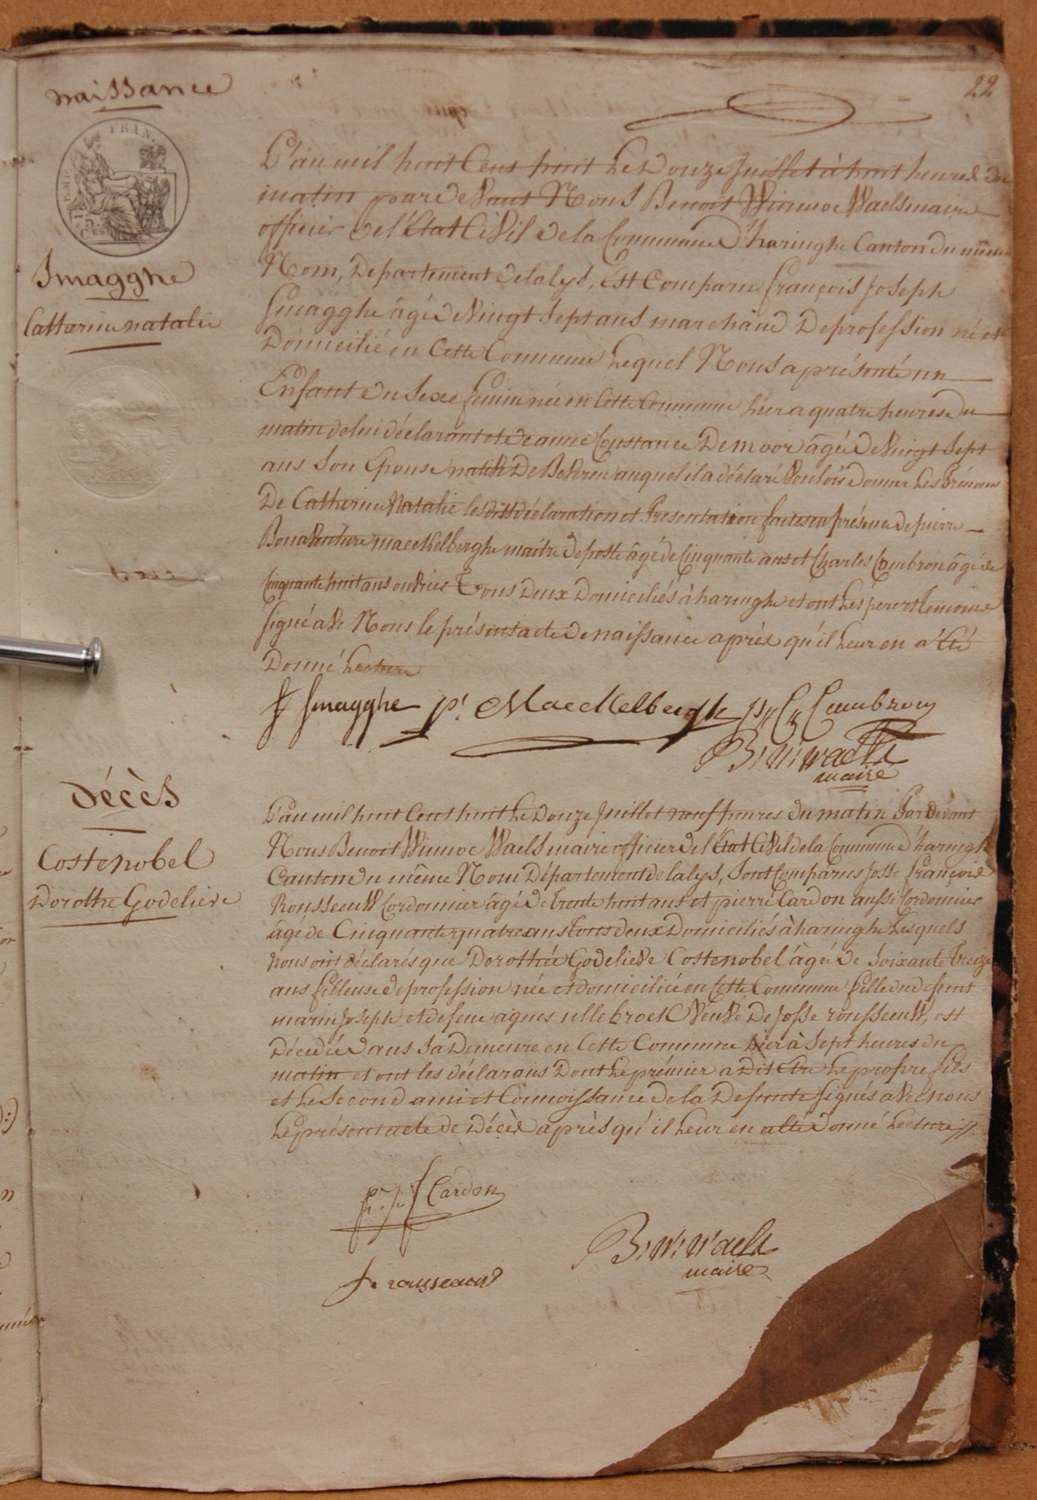 22
naissance
Smagghe
Catherine natalie
L'an mil huit Cent huit Le Douze Juillet à huit heures du
matin pardevant Nous Benoit Winnoc Waels maire
officier de l'État Civil de la Commune d'haringhe Canton du même
Nom, Departement de la lys, Est Comparu françois Joseph
Smagghe âgé de Vingt Sept ans marchand De profession né et
Domicilié en Cette Commune Lequel Nous a présenté un
Enfant du Sexe féminin née en Cette Commune hier a quatre heures du
matin de lui déclarant et de anne Constance Demoor âgée de Vingt Sept
ans Son Epouse native De Beveren auquel il a déclaré Vouloir donner Les Prénoms
De Catherine Natalie les dites déclaration et Présentation faites en présence de pierre
Bonaventure maeckelberghe maitre de poste âgé de Cinquante ans et Charles Cambron âgé de
Cinquante huit ans ouvrier Tous Deux Domiciliés à haringhe et ont Les pere et Temoins
Signé avec Nous le présent acte de naissance après qu'il Leur en a été
Donné Lecture
Smagghe p. Maeckelbergh Cambron
B: W: Waels
maire
Décès
Costenobel
Dorothe Godelieve
L'an mil huit Cent huit Le Douze Juillet neuf heures du matin Par devant
Nous Benoit Winnoc Waels maire officier de l'Etat Civil de la Commune d'haringhe
Canton du même Nom Département de la lys, Sont Comparus Josse François
Rousseeuw Cordonnier âgé de trente huit ans et pierre Cardon aussi Cordonnier
âgé de Cinquante quatre ans Tous deux Domiciliés à haringhe Lesquels
nous ont déclarés que Dorothée Godelieve Costenobel âgée de Soixante treize
ans filleuse de profession née et domiciliée en Cette Commune fille du defunt
marin Joseph et de feue agnes ullebroek Veuve De Josse rousseeuw, est
Décédée dans Sa Demeure en Cette Commune hier à Sept heures du
matin et ont les déclarans Dont Le prémier a dit être Le propre fils
et Le Second ami et Connoissance de la Defunte Signés avec nous
Le présent acte de Décès après qu'il Leur en a été donné Lecture
Cardon
rousseeuw
B: W: Waels
maire